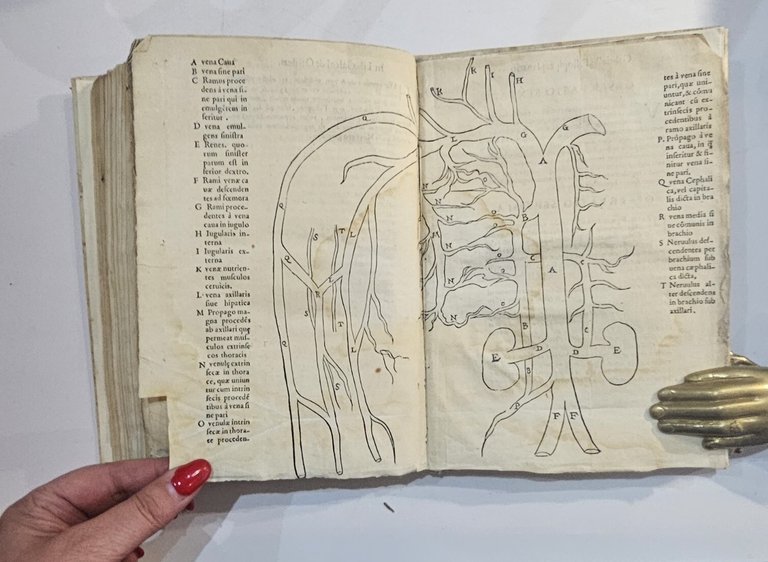 A vena Caua
B vena sine pari
C Ramus proce
dens à vena si
ne pari qui in
emulgētem in
seritur.
D vena emul-
gens sinistra
E Renes, quo-
rum sinister
parum est in
ferior dextro.
F Rami venæ ca
uæ descenden
tes ad fœmora
G Rami proce-
dentes à vena
caua in iugulo
H Iugularis in-
terna
I Iugularis ex-
terna
K venæ nutrien-
tes musculos
ceruicis.
L vena axillaris
siue hipatica
M Propago ma-
gna procedēs
ab axillari quę
permeat mus-
culos extrinse
cos thoracis
N venulę extrin
secæ in thora
ce, quæ uniun
tur cum intrin
secis procedē
tibus à vena si
ne pari
O venulæ intrin
secæ in thora-
te proceden-
tes à vena sine
pari, quæ uni-
untur, & cōmu
nicant cū ex-
trinsecis pro-
cedentibus à
ramo axillaris
P Propago à ve
na caua, in q̄
inseritur & fi-
nitur vena si-
ne pari.
Q vena Cephali
ca, vel capita-
lis dicta in bra
chio
R vena media si
ue cōmunis in
brachio
S Neruulus des-
cendentes per
brachium sub
uena cæphali-
ca dicta,
T Neruulus al-
ter descendens
in brachio sub
axillari.